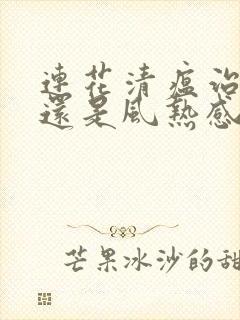 連花清瘟治
還是風熱感
芒果冰沙的甜